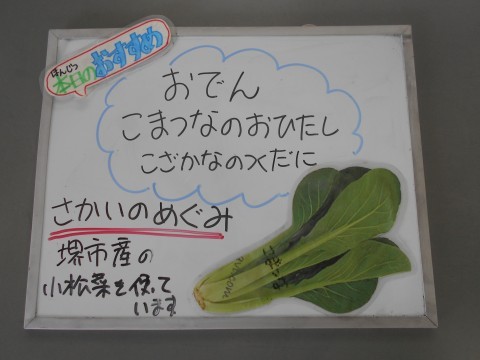 ほんじつ
本日のおすすめ
おでん
こまつなのおひたし
こざかなのつくだに
さかいのめぐみ
堺市産の
小松菜を使て
います